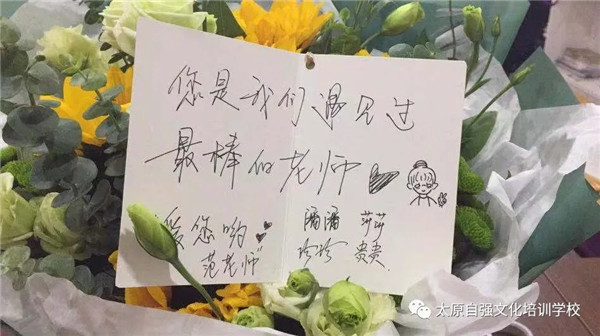 您是我们遇见过
最棒的老师
爱您哟
范老师
潘潘 莎莎
玲玲 贵贵
太原自强文化培训学校